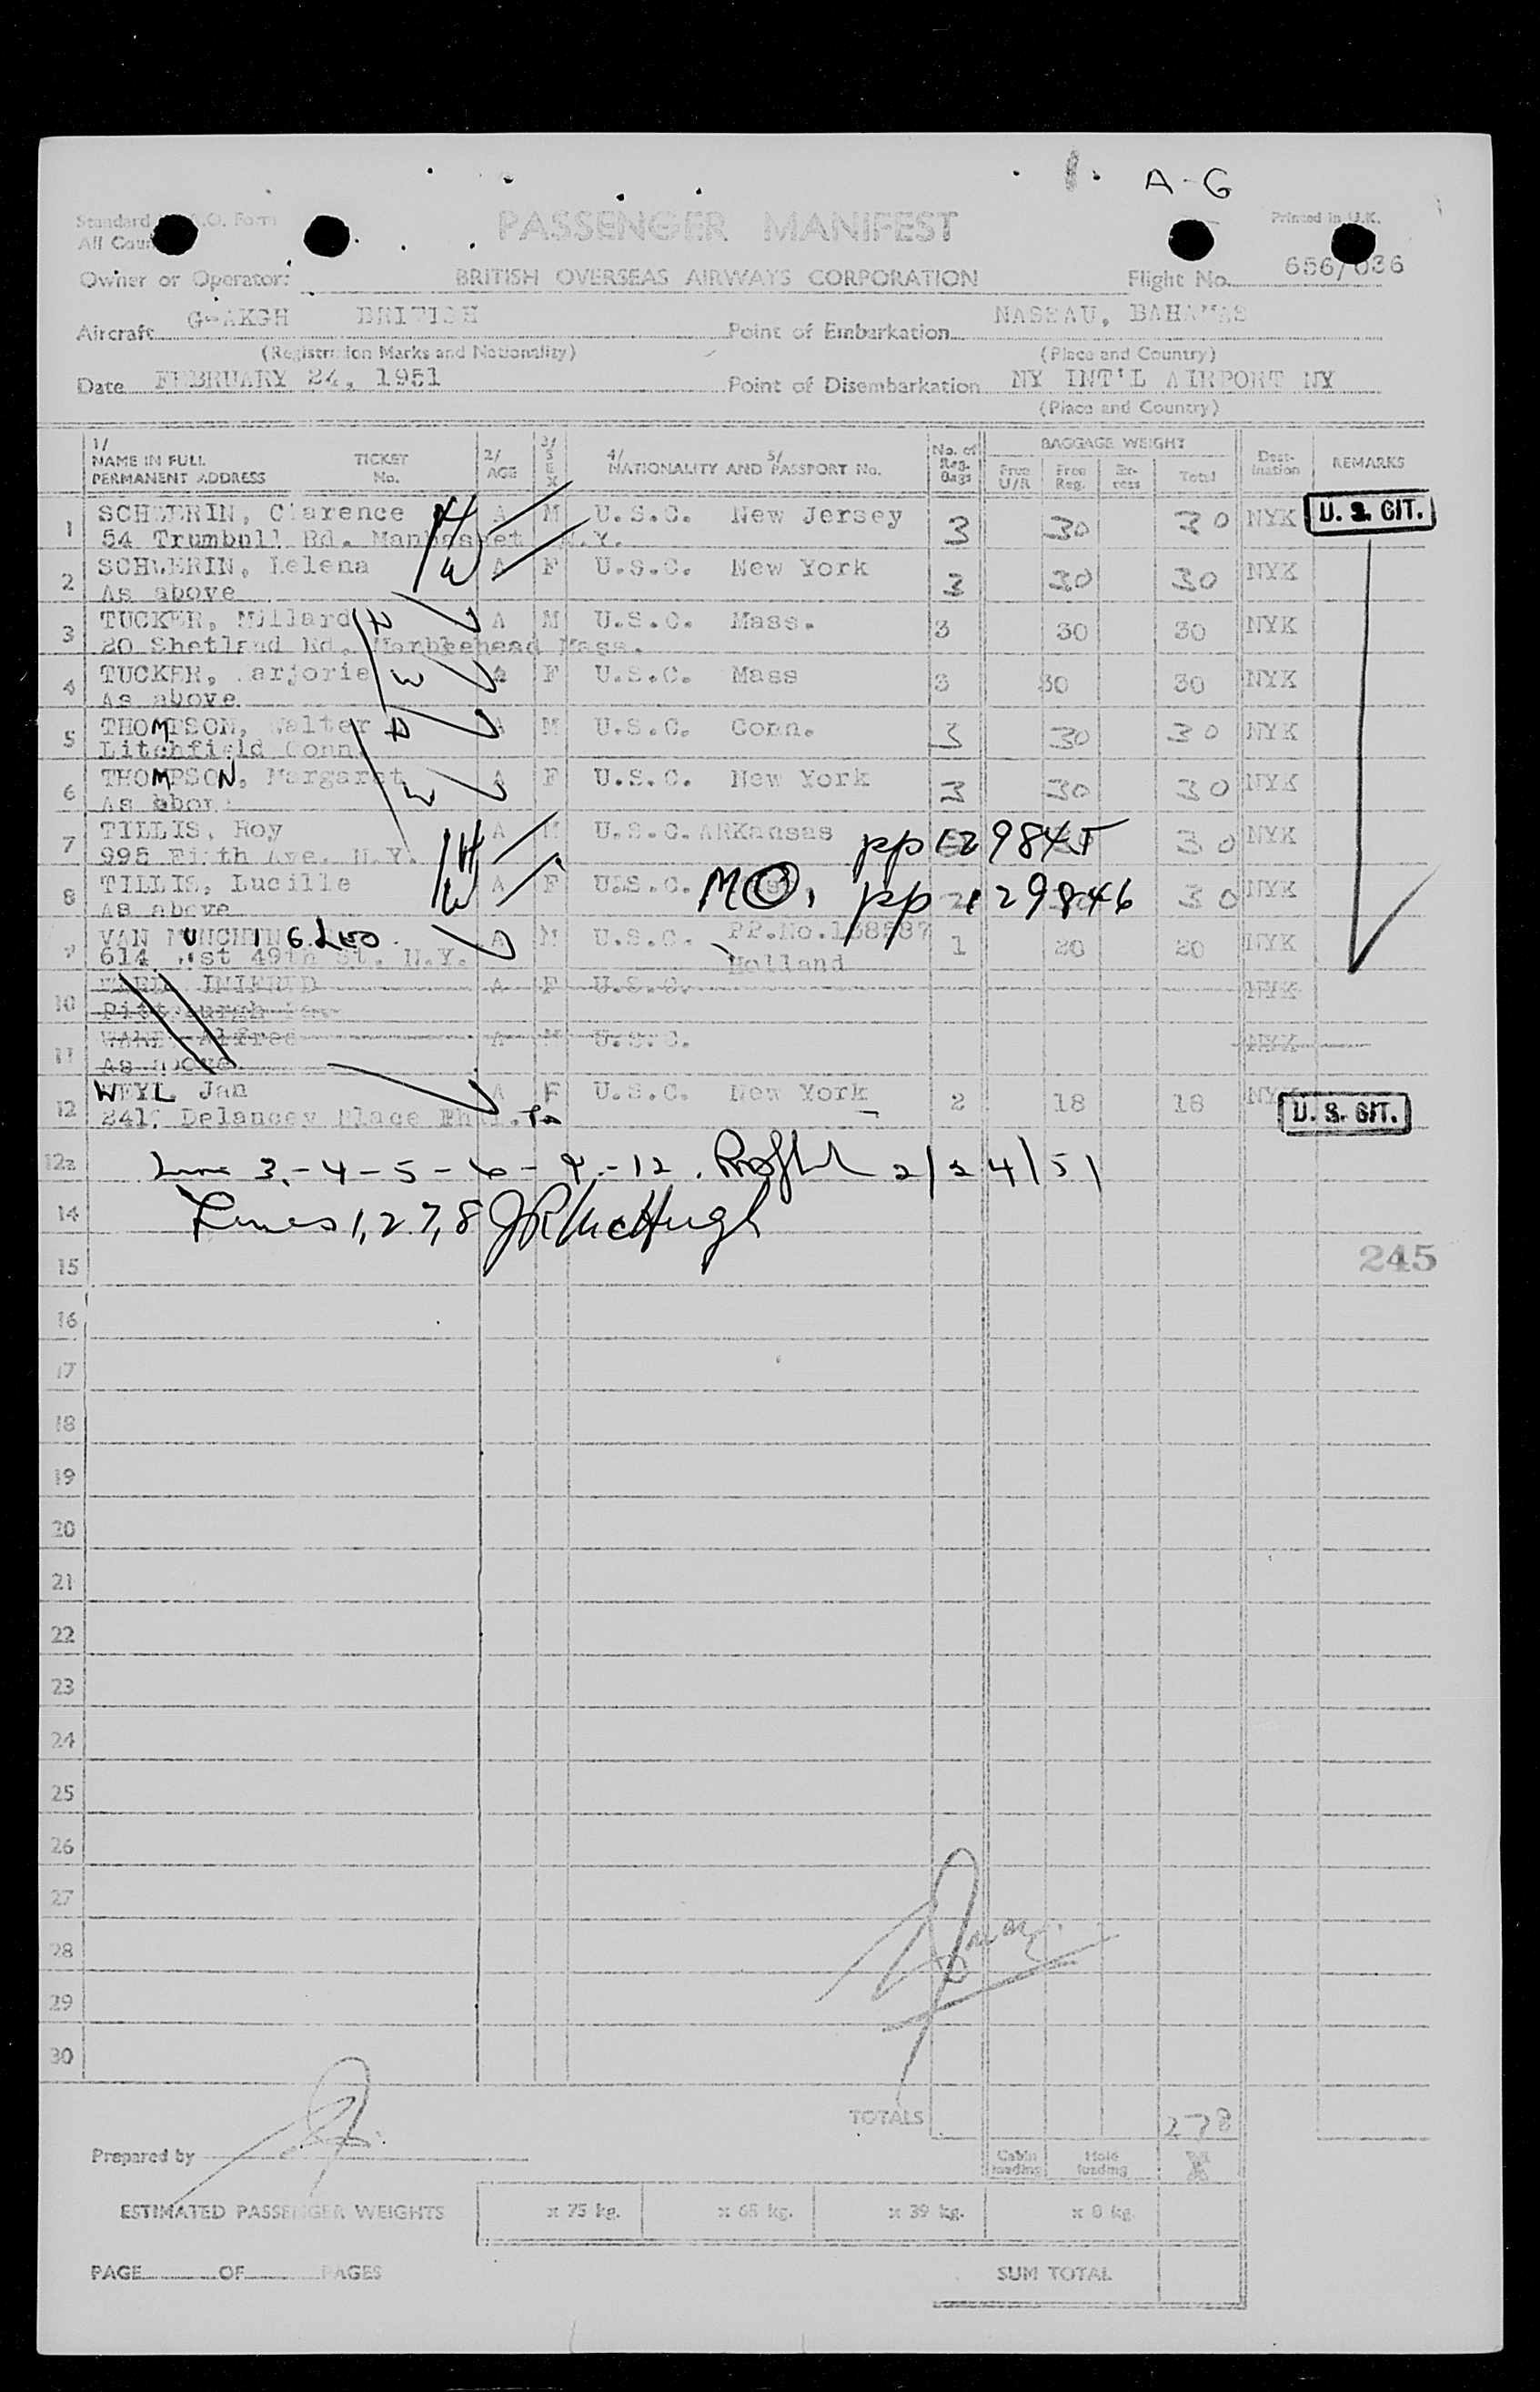 A-G
Standard I.C.A.O. Form
PASSENGER MANIFEST
Printed in U.K.
All Coun
Owner or Operator: BRITISH OVERSEAS AIRWAYS CORPORATION Flight No. 656/036
Aircraft G-AKGH BRITISH Point of Embarkation NASSAU, BAHAMAS
(Registration Marks and Nationality) (Place and Country)
Date FEBRUARY 24, 1951 Point of Disembarkation NY INT'L AIRPORT NY
(Place and Country)
1/ NAME IN FULL PERMANENT ADDRESS TICKET No. 2/ AGE 3/ SEX 4/ 5/ NATIONALITY AND PASSPORT No. No. of Reg. Bags BAGGAGE WEIGHT Free U/R Free Reg. Ex-cess Total Dest-ination REMARKS
1 SCHWERIN, Clarence H A M U.S.C. New Jersey 3 30 30 NYK U. S. CIT.
54 Trumbull Rd. Manhasset N.Y.
2 SCHWERIN, Lelena W A F U.S.C. New York 3 30 30 NYK
As above
3 TUCKER, Millard H A M U.S.C. Mass. 3 30 30 NYK
20 Shetland Rd. Marblehead Mass.
4 TUCKER, Marjorie W A F U.S.C. Mass 3 30 30 NYK
As above
5 THOMPSON, Walter H A M U.S.C. Conn. 3 30 30 NYK
Litchfield Conn.
6 THOMPSON, Margaret W A F U.S.C. New York 3 30 30 NYK
As above
7 TILLIS, Roy H A M U.S.C. ARKansas pp 129845 30 NYK
995 Fifth Ave. N.Y.
8 TILLIS, Lucille W A F U.S.C. MO. pp 129846 30 NYK
As above
9 VAN MUNCHING Leo A M U.S.C. PP.No. 1 20 20 NYK
614 West 49th St. N.Y. Holland
10 A F U.S.C. NYK
Pittsburgh
11 Alfred A M U.S.C. NYK
As above
12 WEYL, Jan A F U.S.C. New York 2 18 18 NYK U. S. CIT.
Delancey Place Phil. Pa
Line 3-4-5-6-9-12. 2/24/51
14 Lines 1,2 7,8 JR McHugh
15 245
16
17
18
19
20
21
22
23
24
25
26
27
28
29
30
TOTALS 278
Prepared by Cabin loading Hold loading
ESTIMATED PASSENGER WEIGHTS x 75 kg. x 65 kg. x 39 kg. x 8 kg.
PAGE OF PAGES SUM TOTAL